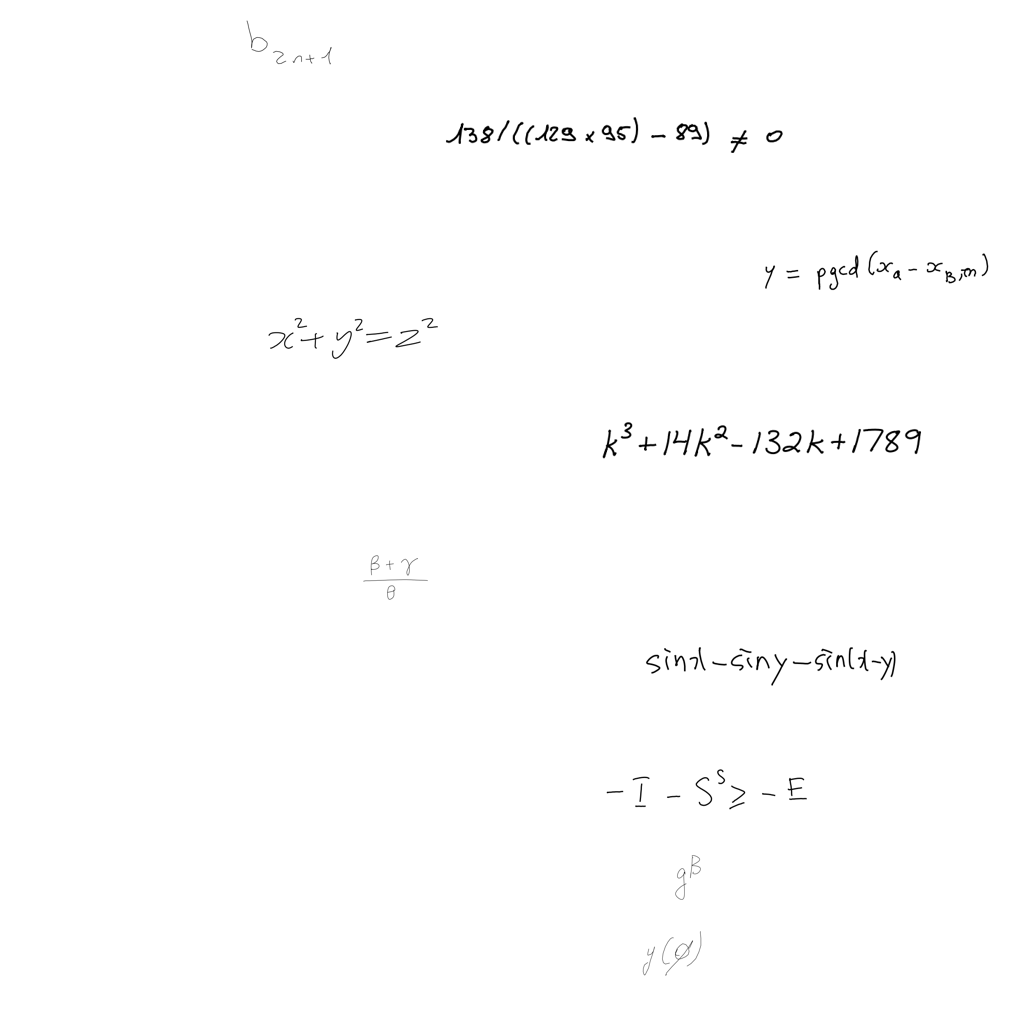 b_{2n+1}
138/((129×95)-89) ≠ 0
y = pgcd(x_a - x_{B,m})
x^2 + y^2 = z^2
k^3+14k^2-132k+1789
\frac{β+γ}{θ}
sinx-siny-sin(x-y)
-I-S^s ≥ -E
g^B
y(ø)